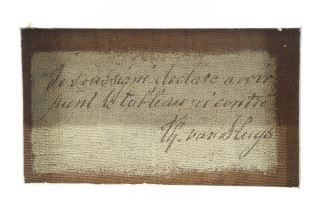 Je soussigné déclare avoir
peint le tableau ci contre
Th. van Sluys